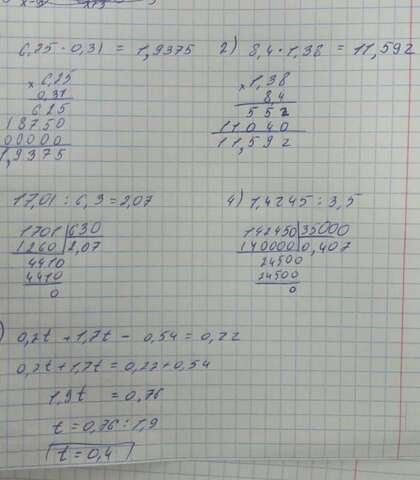 6,25 · 0,31 = 1,9375
× 6,25
0,31
625
18750
00000
1,9375
2) 8,4 · 1,38 = 11,592
× 1,38
8,4
552
11040
11,592
17,01 : 6,3 = 2,07
1701 | 630
1260 | 2,07
4410
4410
0
4) 1,4245 : 3,5
142450 | 35000
140000 | 0,407
24500
24500
0
) 0,2t + 1,7t - 0,54 = 0,22
0,2t + 1,7t = 0,22 + 0,54
1,9t = 0,76
t = 0,76 : 1,9
t = 0,4